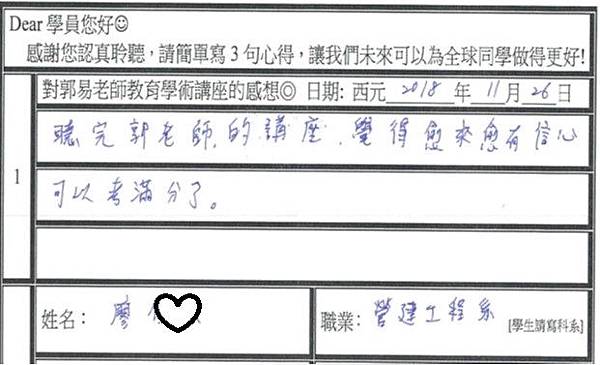 Dear 學員您好☺
感謝您認真聆聽，請簡單寫3句心得，讓我們未來可以為全球同學做得更好!
對郭易老師教育學術講座的感想◎ 日期: 西元 2018 年 11 月 26 日
1
聽完郭老師的講座，覺得愈來愈有信心
可以考滿分了。
姓名： 廖
職業： 營建工程系 [學生請寫科系]